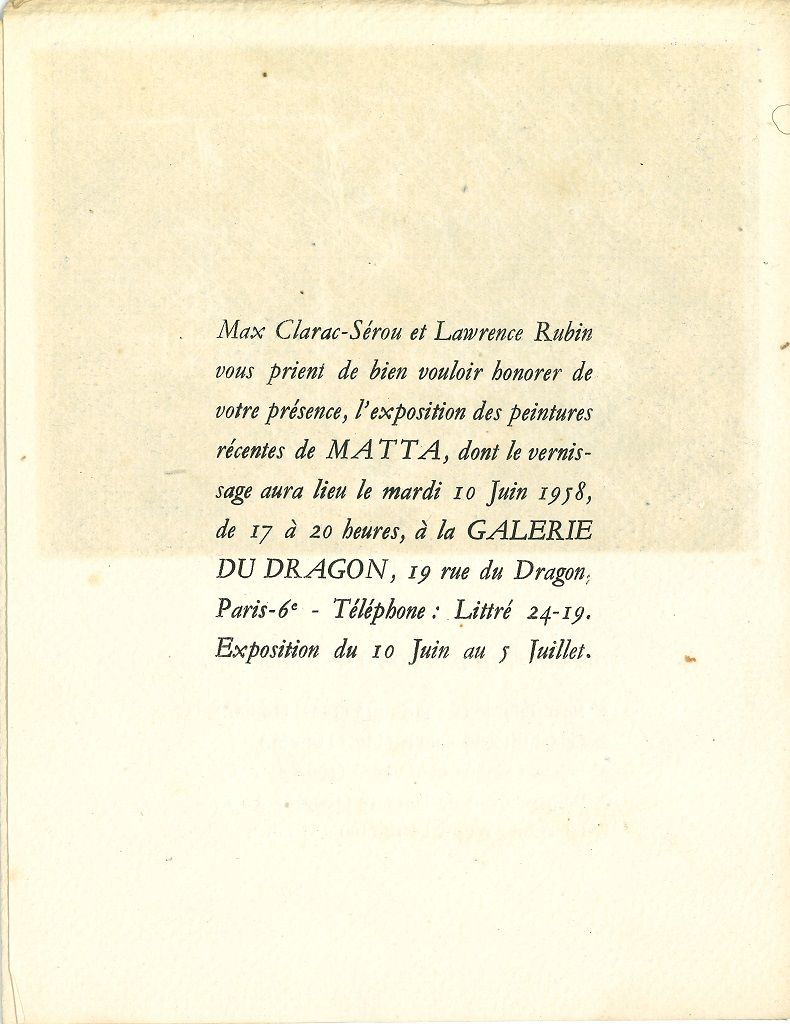 Max Clarac-Sérou et Lawrence Rubin
vous prient de bien vouloir honorer de
votre présence, l'exposition des peintures
récentes de MATTA, dont le vernis-
sage aura lieu le mardi 10 Juin 1958,
de 17 à 20 heures, à la GALERIE
DU DRAGON, 19 rue du Dragon,
Paris-6e - Téléphone : Littré 24-19.
Exposition du 10 Juin au 5 Juillet.